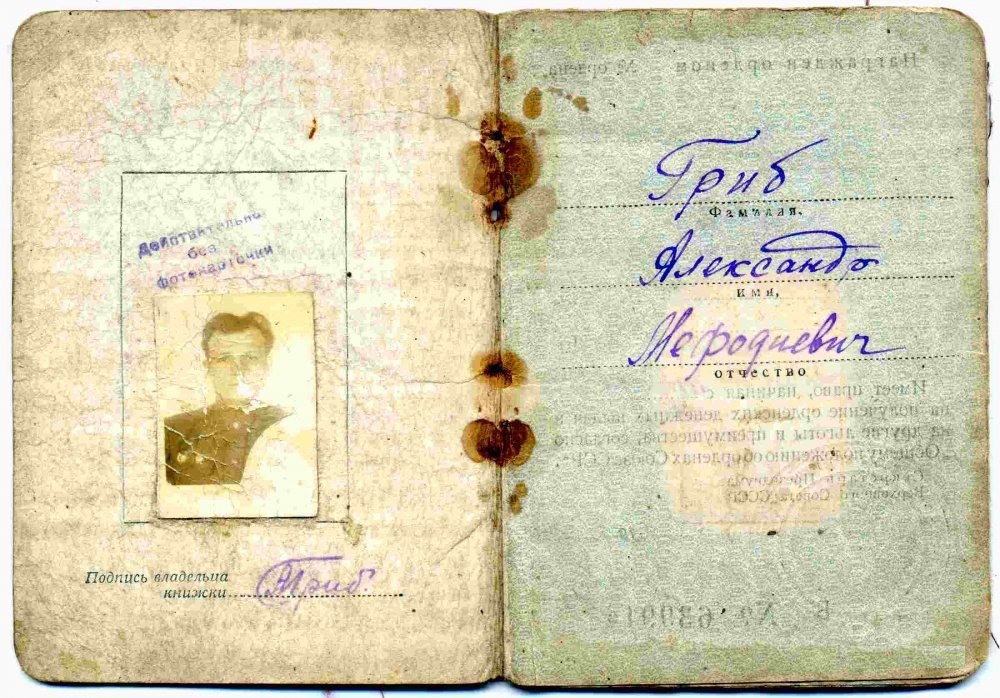 Действительно
без
фотокарточки
Подпись владельца
книжки
Гриб
Гриб
Фамилия,
Александр
имя,
Мефодиевич
отчество
Награжден орденом № ордена.
Имеет право, начиная с
на получение орденских денежных выдач и
на другие льготы и преимущества, согласно
„Общему положению об орденах Союза ССР“.
Секретарь Президиума
Верховного Совета СССР